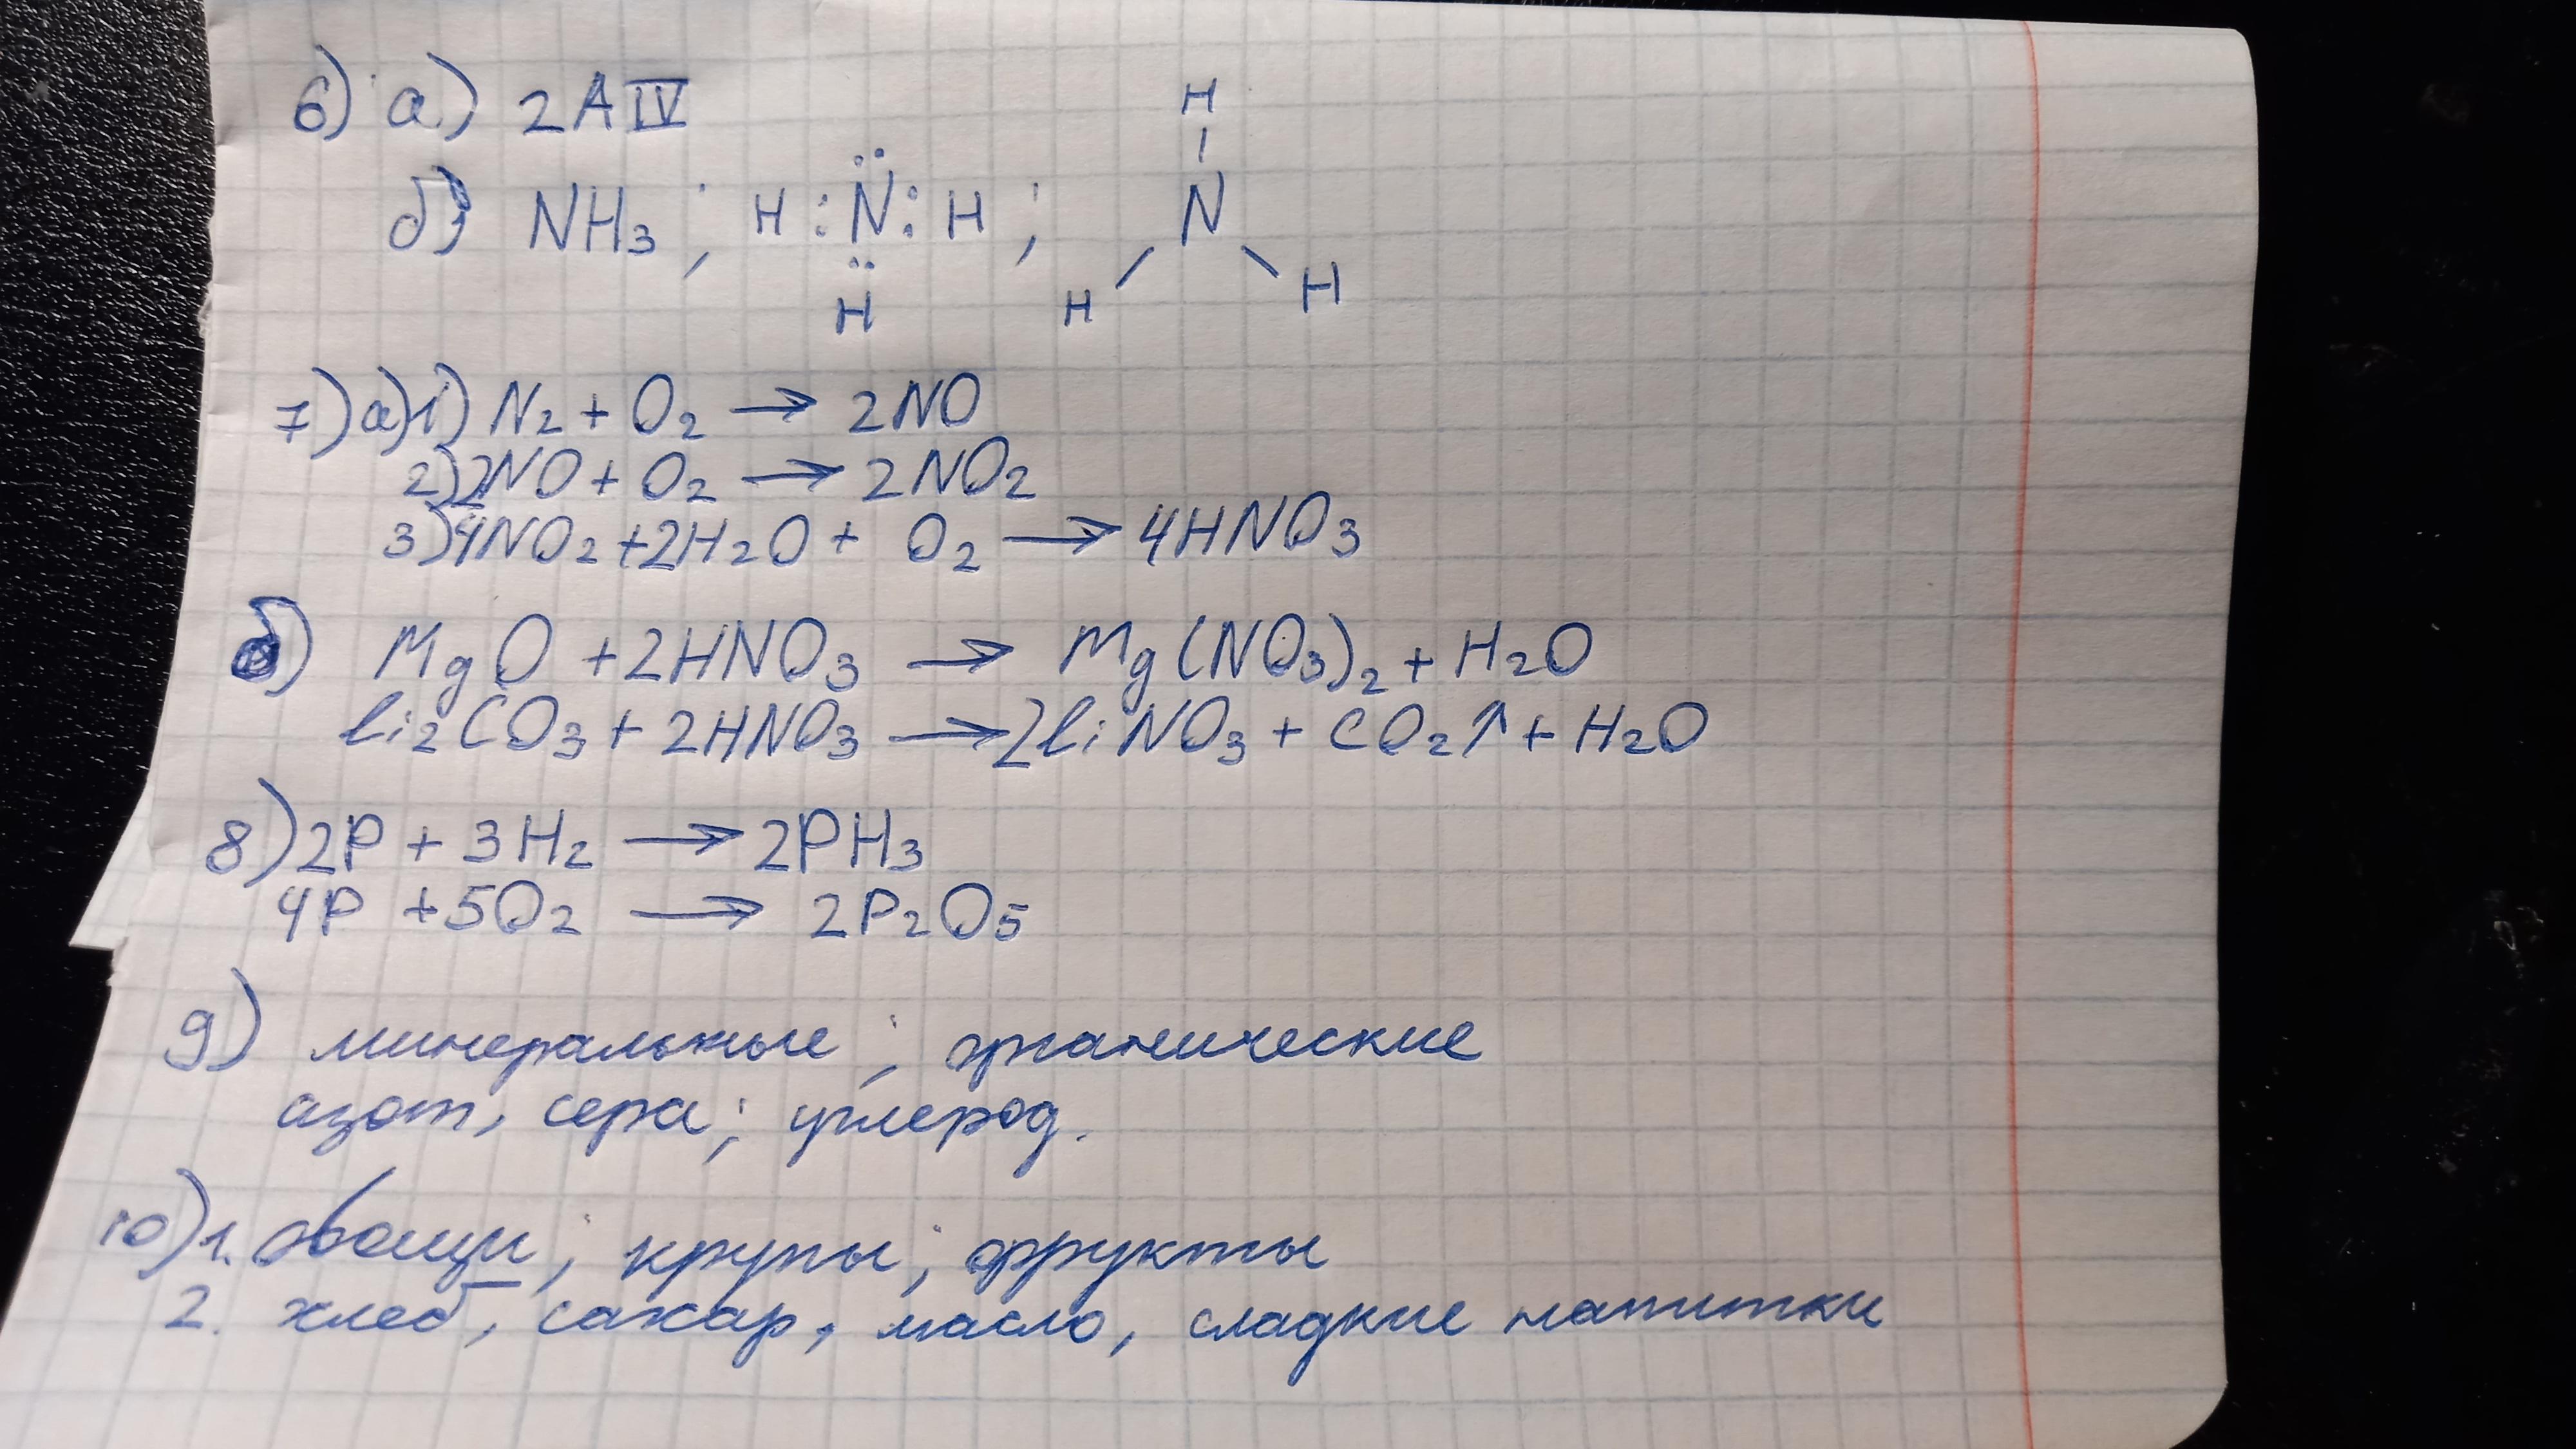 6) а) 2AIV
б) NH3 ; H : N̈ : H ; H - N
.. H H H
7) а) 1) N2 + O2 → 2NO
2) 2NO + O2 → 2NO2
3) 4NO2 + 2H2O + O2 → 4HNO3
б) MgO + 2HNO3 → Mg(NO3)2 + H2O
Li2CO3 + 2HNO3 → 2LiNO3 + CO2↑ + H2O
8) 2P + 3H2 → 2PH3
4P + 5O2 → 2P2O5
9) минеральные ; органические
азот, сера; углерод.
10) 1. овощи ; крупы ; фрукты
2. хлеб, сахар, масло, сладкие напитки